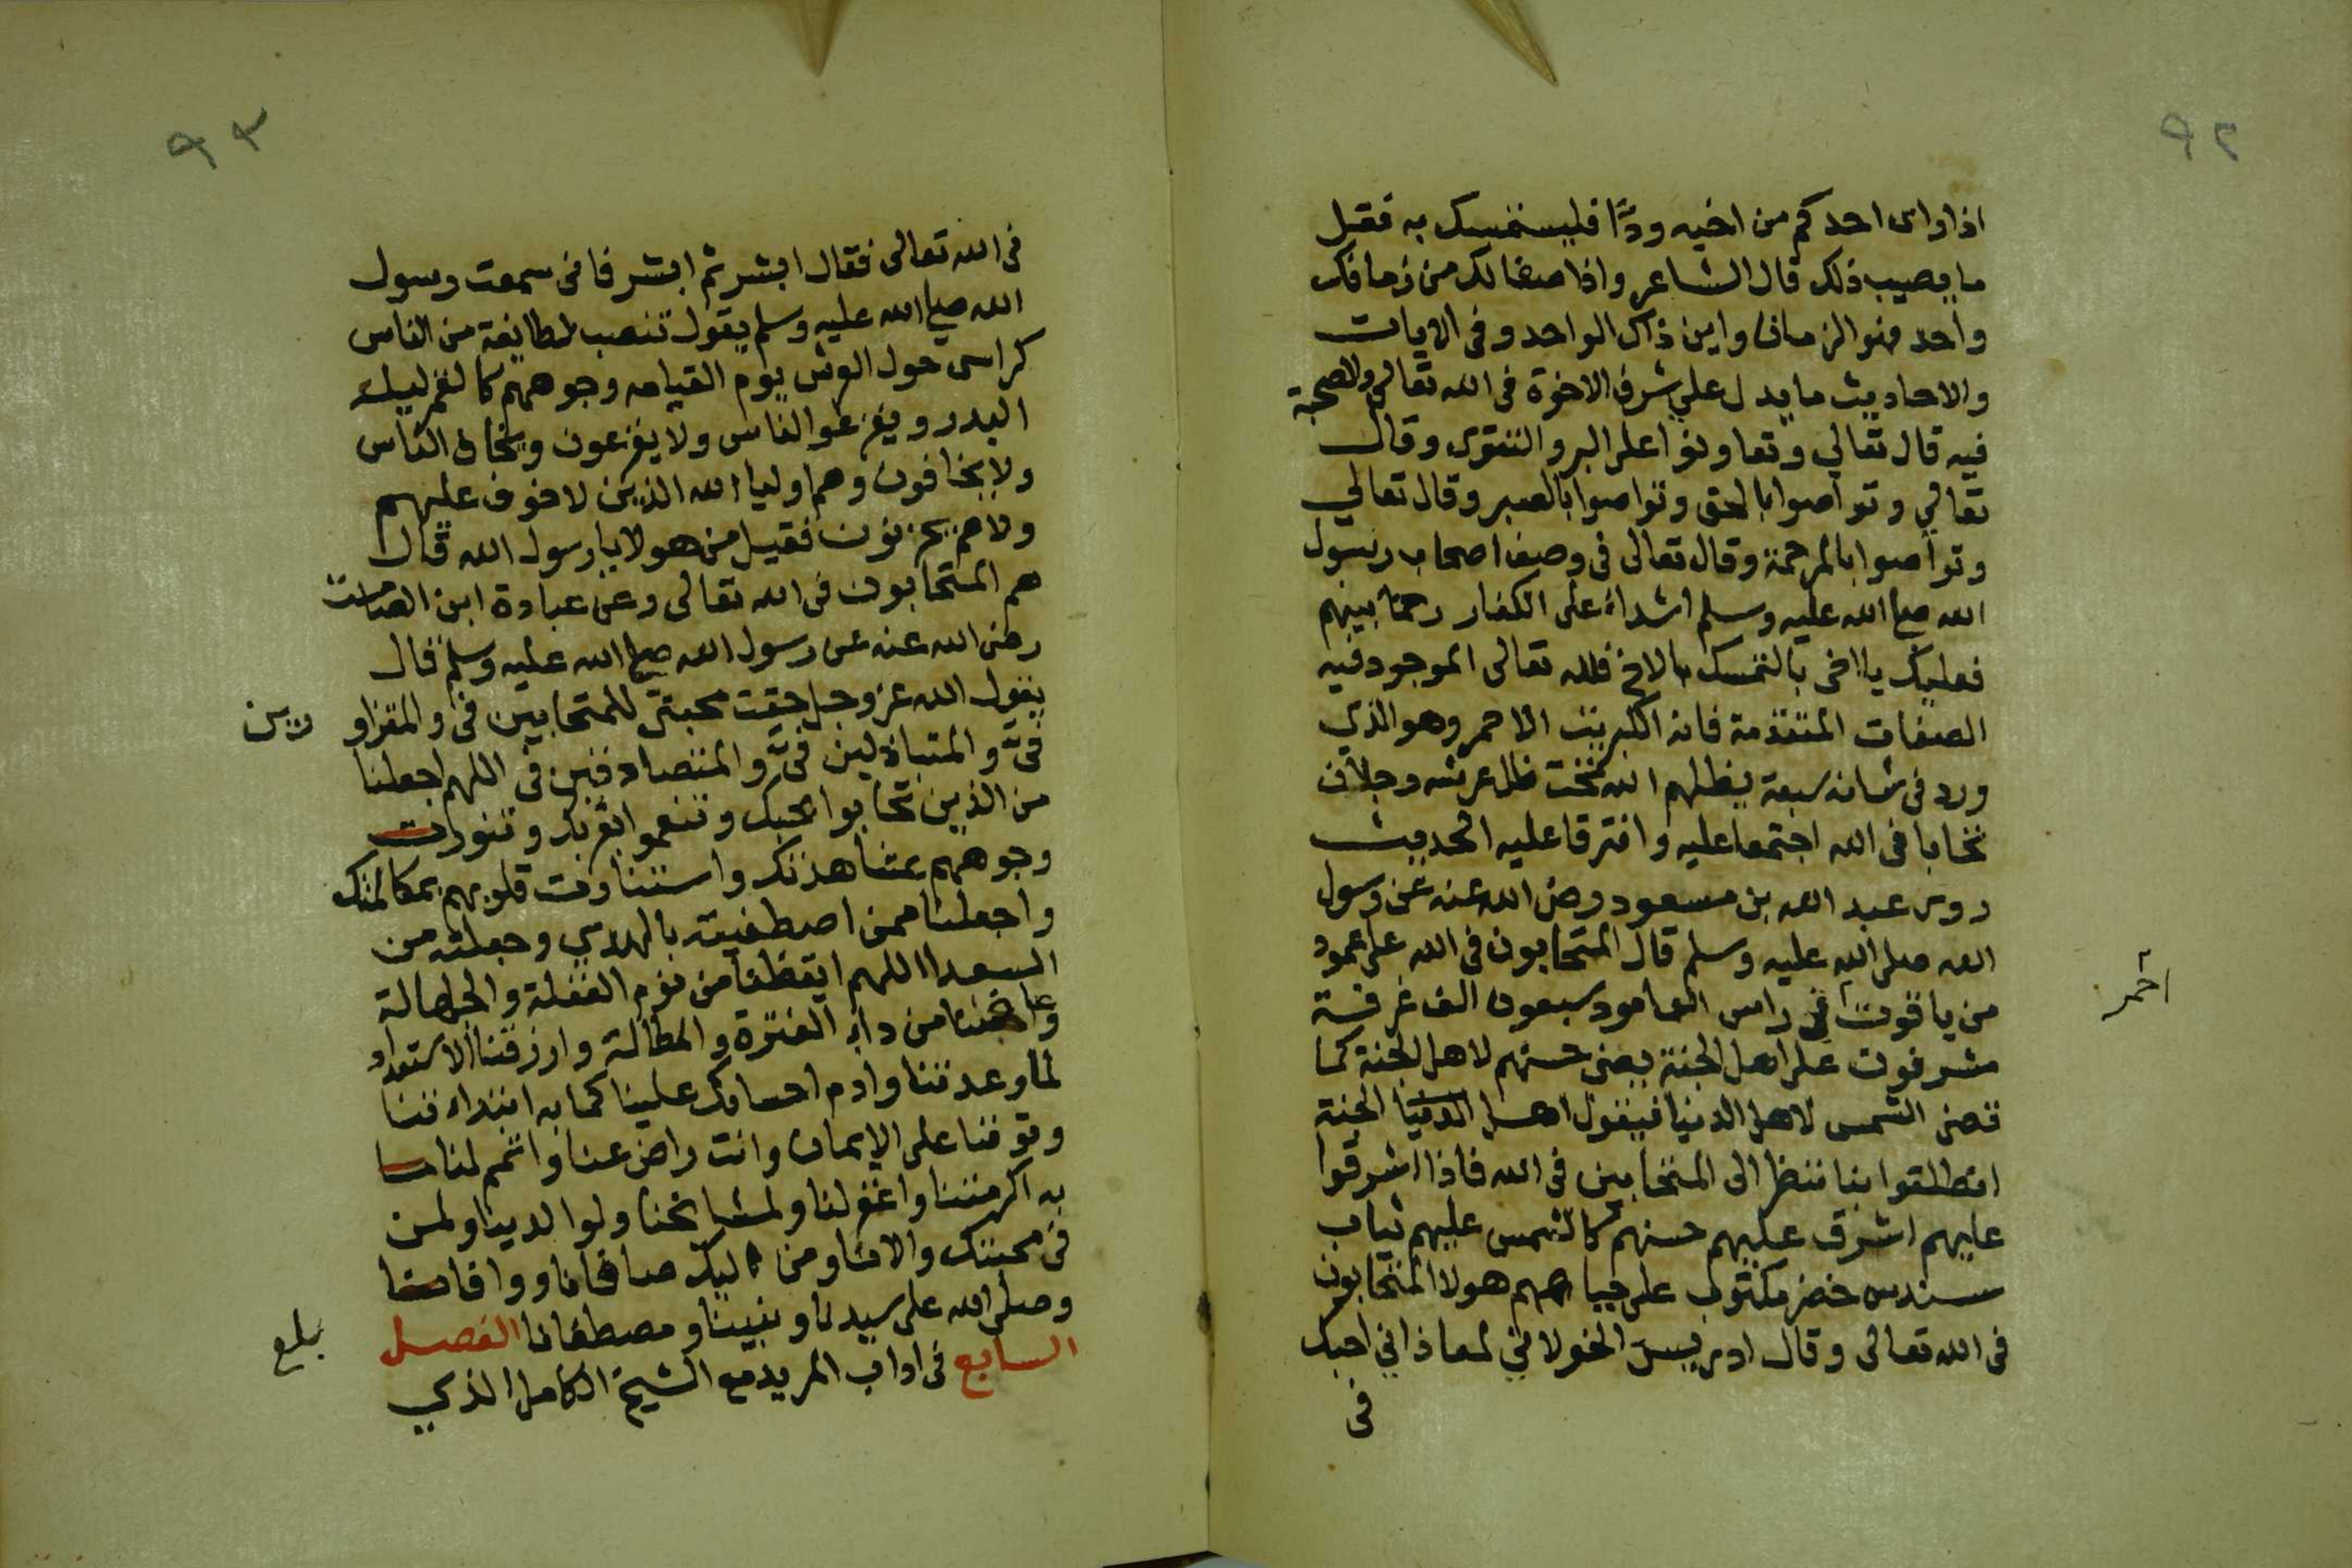 ٩٢
اذا راى احدكم من اخيه ودًّا فليستمسك به فقبل
ما يصيب ذلك قال الشاعر واذا صفا لك من زمانك
واحد فهو الزمان واين ذاك الواحد وفى الايات
والاحاديث ما يدل علي شرف الاخوة فى الله تعالي والصحبة
فيه قال تعالي وتعاونوا على البر والتقوى وقال
تعالي وتواصوا بالحق وتواصوا بالصبر وقال تعالي
وتواصوا بالمرحمة وقال تعالى فى وصف اصحاب رسول
الله صلى الله عليه وسلم اشداء على الكفار رحما بينهم
فعليك يا اخى بالتمسك بالاخ فلله تعالى الموجود فيه
الصفات المتقدمة فانه الكبريت الاحمر وهو الذي
ورد فى شانه سبعة يظلهم الله تحت ظل عرشه رجلان
تحابا فى الله اجتمعا عليه وافترقا عليه الحديث
روى عبد الله بن مسعود رضى الله عنه عن رسول
الله صلى الله عليه وسلم قال المتحابون فى الله على عمود
من ياقوت فى راس العامود سبعون الف غرفة
احمر
مشرفون على اهل الجنة يضئ حسنهم لاهل الجنة كما
تضئ الشمس لاهل الدنيا فيقول اهل الدنيا الجنة
انطلقوا بنا ننظر الى المتحابين فى الله فاذا اشرقوا
عليهم اشرق عليهم حسنهم كالشمس عليهم ثياب
سندس خضر مكتوب على جباههم هولا المتحابون
فى الله تعالى وقال ادريس الخولاني لمعاذ اني احبك
فى
٩٣
فى الله تعالى فقال ابشر ثم ابشر فانى سمعت رسول
الله صلى الله عليه وسلم يقول تنصب لطايفة من الناس
كراسى حول العرش يوم القيامه وجوههم كالقمر ليلة
البدر ويفزعو الناس ولا يفزعون ويخاف الناس
ولا يخافون وهم اوليا الله الذين لا خوف عليهم
ولا هم يحزنون فقيل من هولا يا رسول الله قال
هم المتحابون فى الله تعالى وعن عبادة ابن الصامت
رضى الله عنه عن رسول الله صلى الله عليه وسلم قال
يقول الله عز وجل حقت محبتى للمتحابين فى والمتزاو
رين
فىّ والمتباذلين فىّ والمتصادقين فى اللهم اجعلنا
من الذين تحابوا بحبك وتنعموا بقربك وتنورت
وجوههم بمشاهدتك واستنارت قلوبهم بمكالمتك
واجعلنا ممن اصطفيته بالهدي وجعلته من
السعدا اللهم ايقظنا من نوم الغفلة والجهالة
وعافنا من داء الفترة والمطالة وارزقنا الاستعداد
لما وعدتنا وادم احسانك علينا كما به ابتداتنا
وتوفنا على الايمان وانت راض عنا واتمم لنا ما
به اكرمتنا واغفر لنا ولمشايخنا ولوالدينا ولمن
فى محبتك والانا ومن اليك صافانا ووافانا
وصلى الله على سيدنا ونبينا ومصطفانا الفصل
بلغ
السابع فى اداب المريد مع الشيخ الكامل الذي